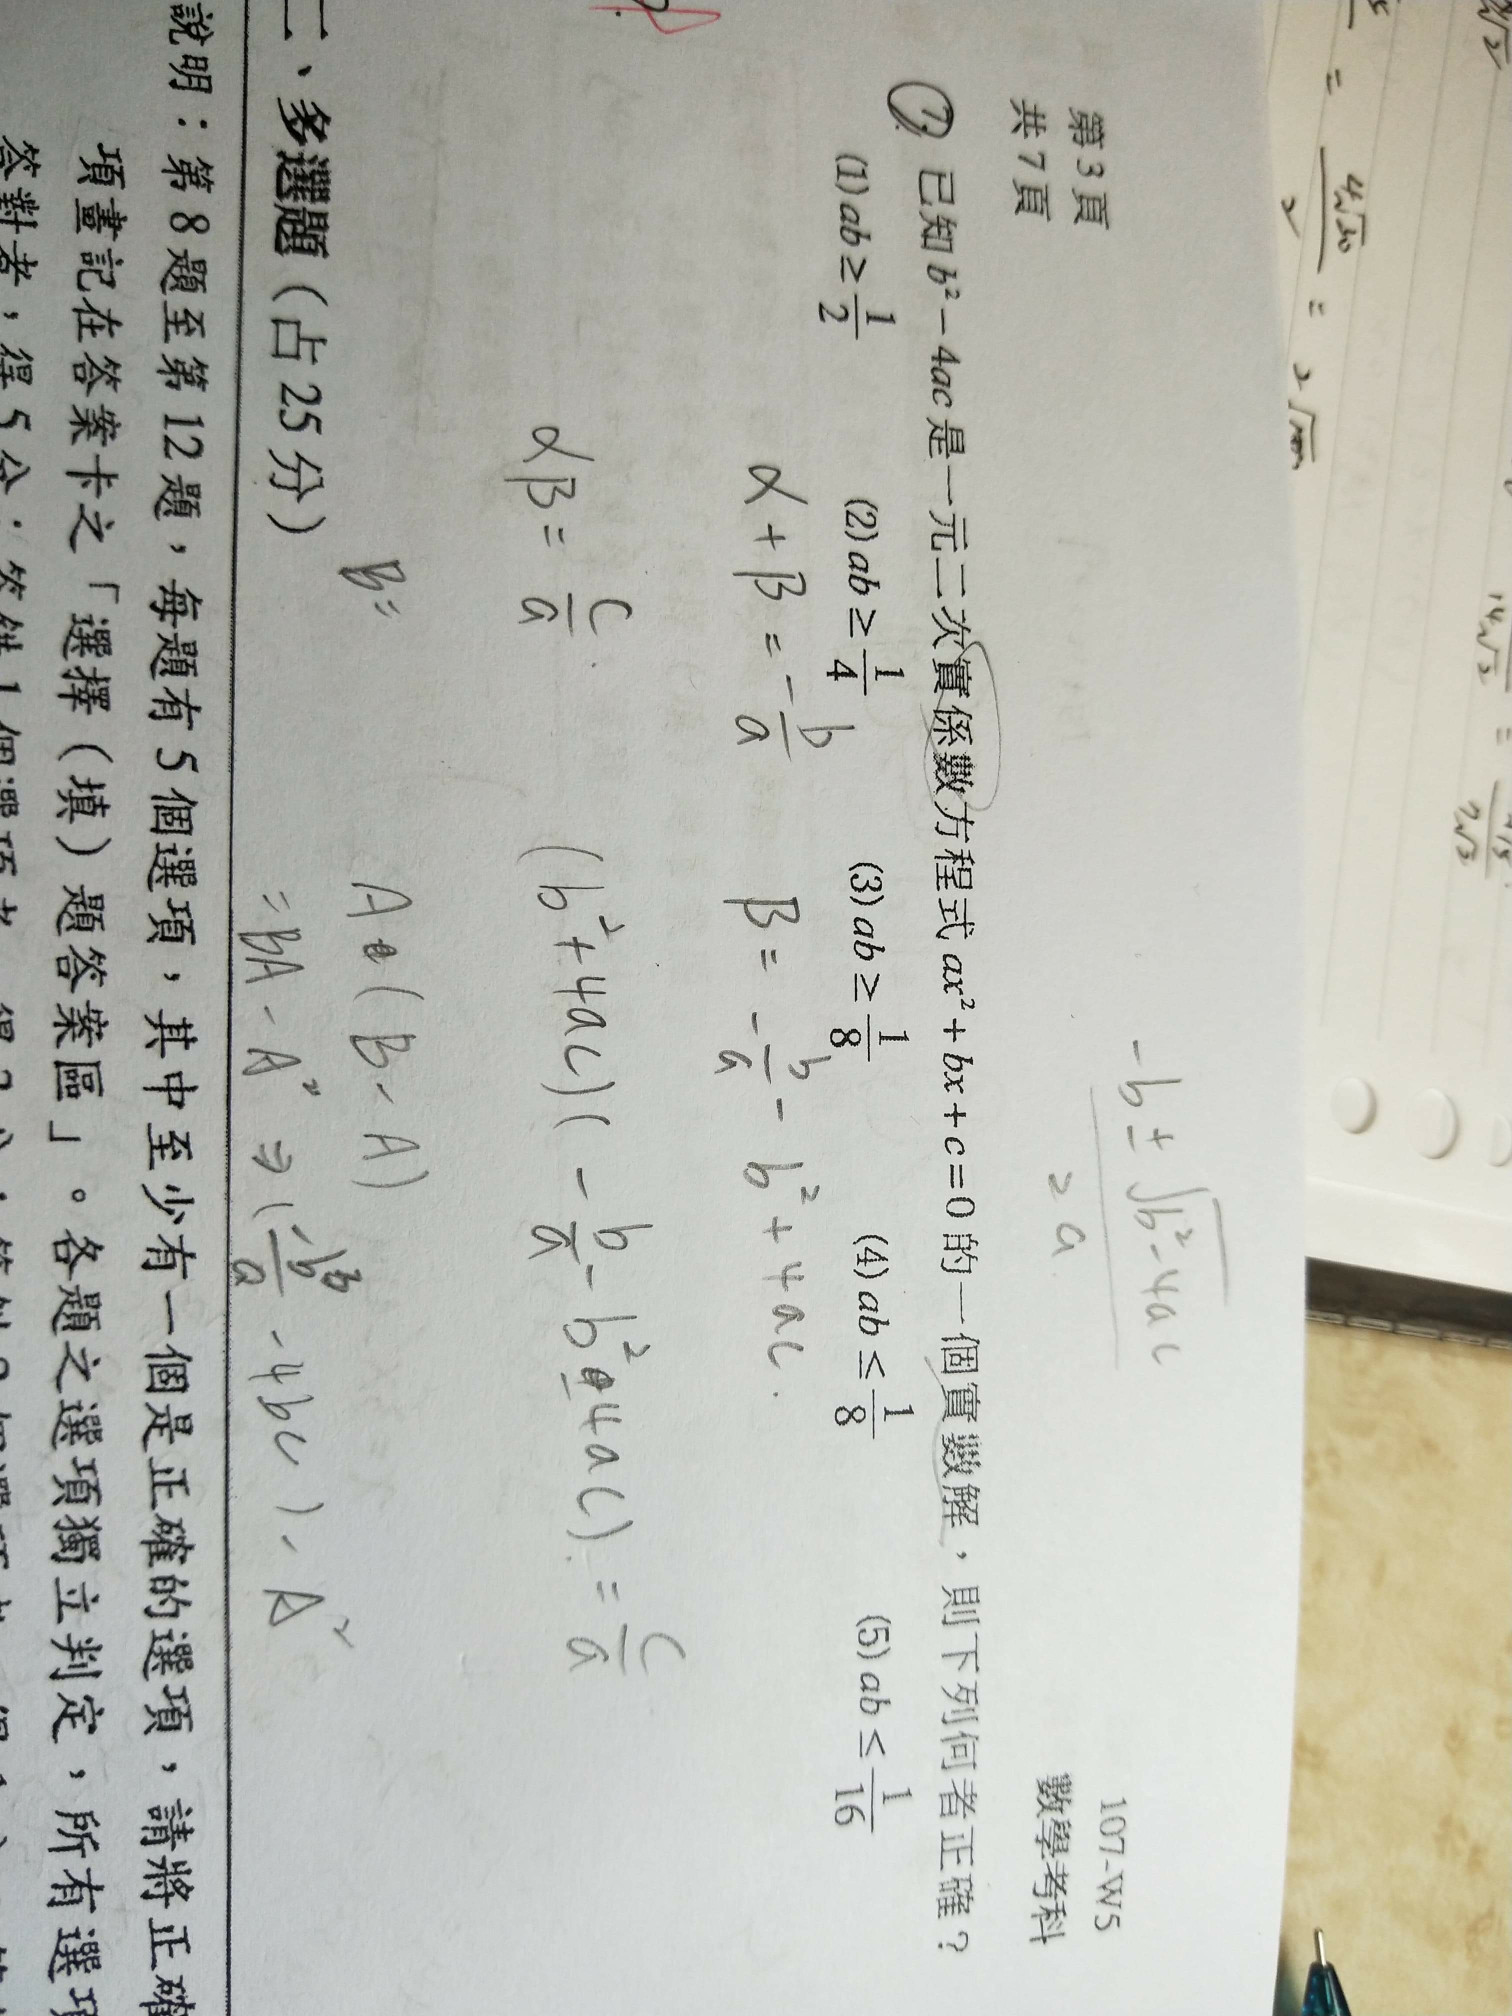 第3頁
共7頁
107-W5
數學考科
-b±√b²-4ac
2a
⑦. 已知 b²-4ac 是一元二次實係數方程式 ax²+bx+c=0 的一個實數解，則下列何者正確？
(1) ab≥1/2 (2) ab≥1/4 (3) ab≥1/8 (4) ab≤1/8 (5) ab≤1/16
α+β=-b/a β=-b/a-b²+4ac.
αβ=c/a. (b²+4ac)(-b/a-b²-4ac).=c/a
B= A(B-A)
=BA-A² ⇒(-b³/a-4bc)-A²
二、多選題（占25分）
說明：第8題至第12題，每題有5個選項，其中至少有一個是正確的選項，請將正確
項畫記在答案卡之「選擇（填）題答案區」。各題之選項獨立判定，所有選項
答對者，得5分；答錯1個選項者，得3分；